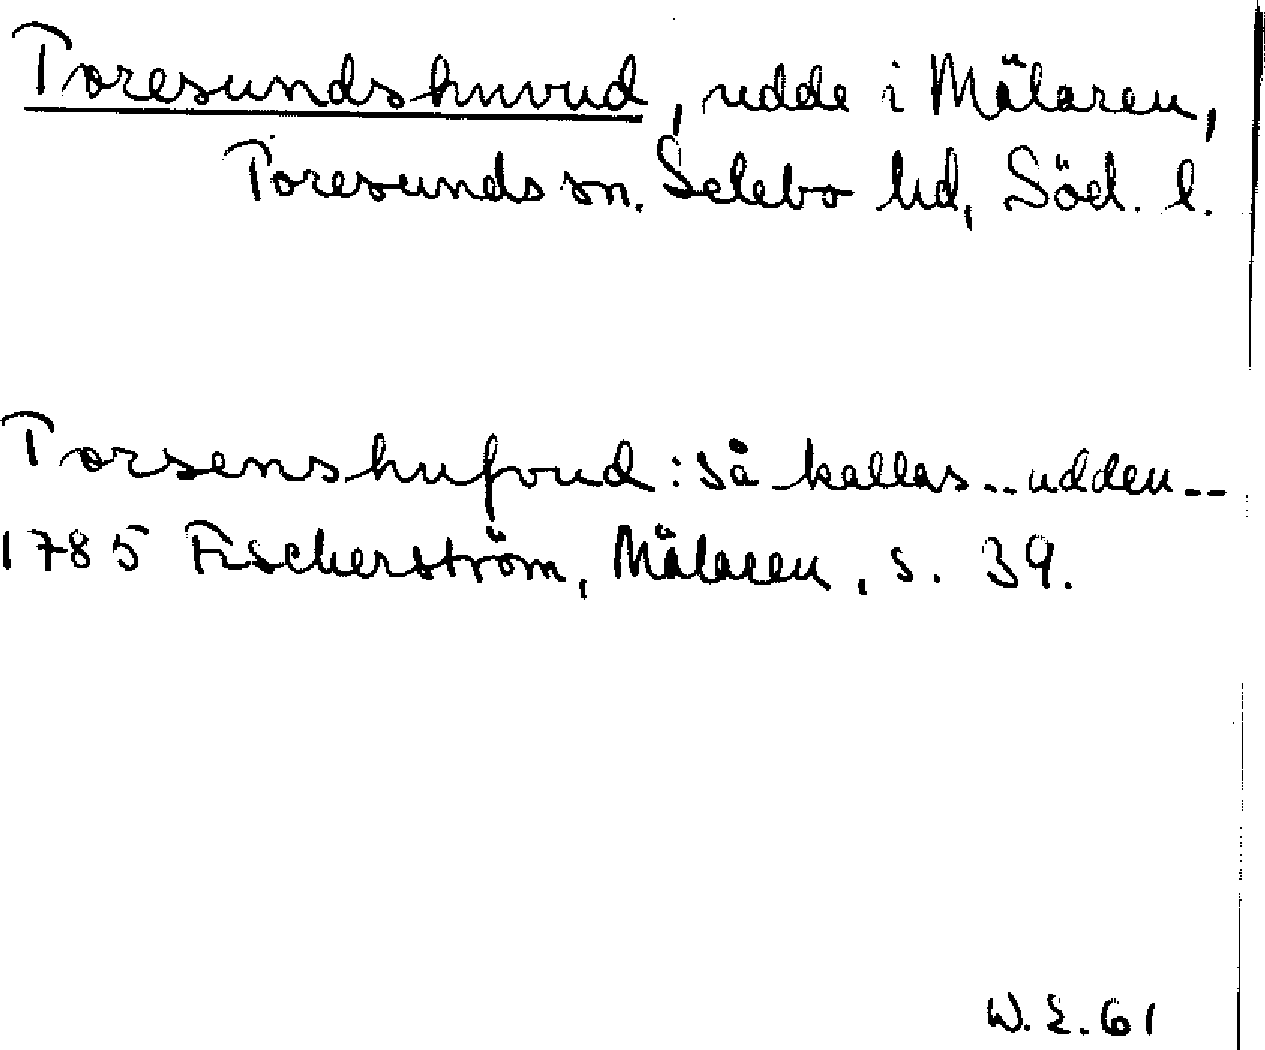 Toresundshuvud, udde i Mälaren,
Toresunds sn. Selebo hd, Söd. l.
Torsenshufvud: så kallas.. udden --
1785 Fischerström, Mälaren, s. 39.
W. E. 61